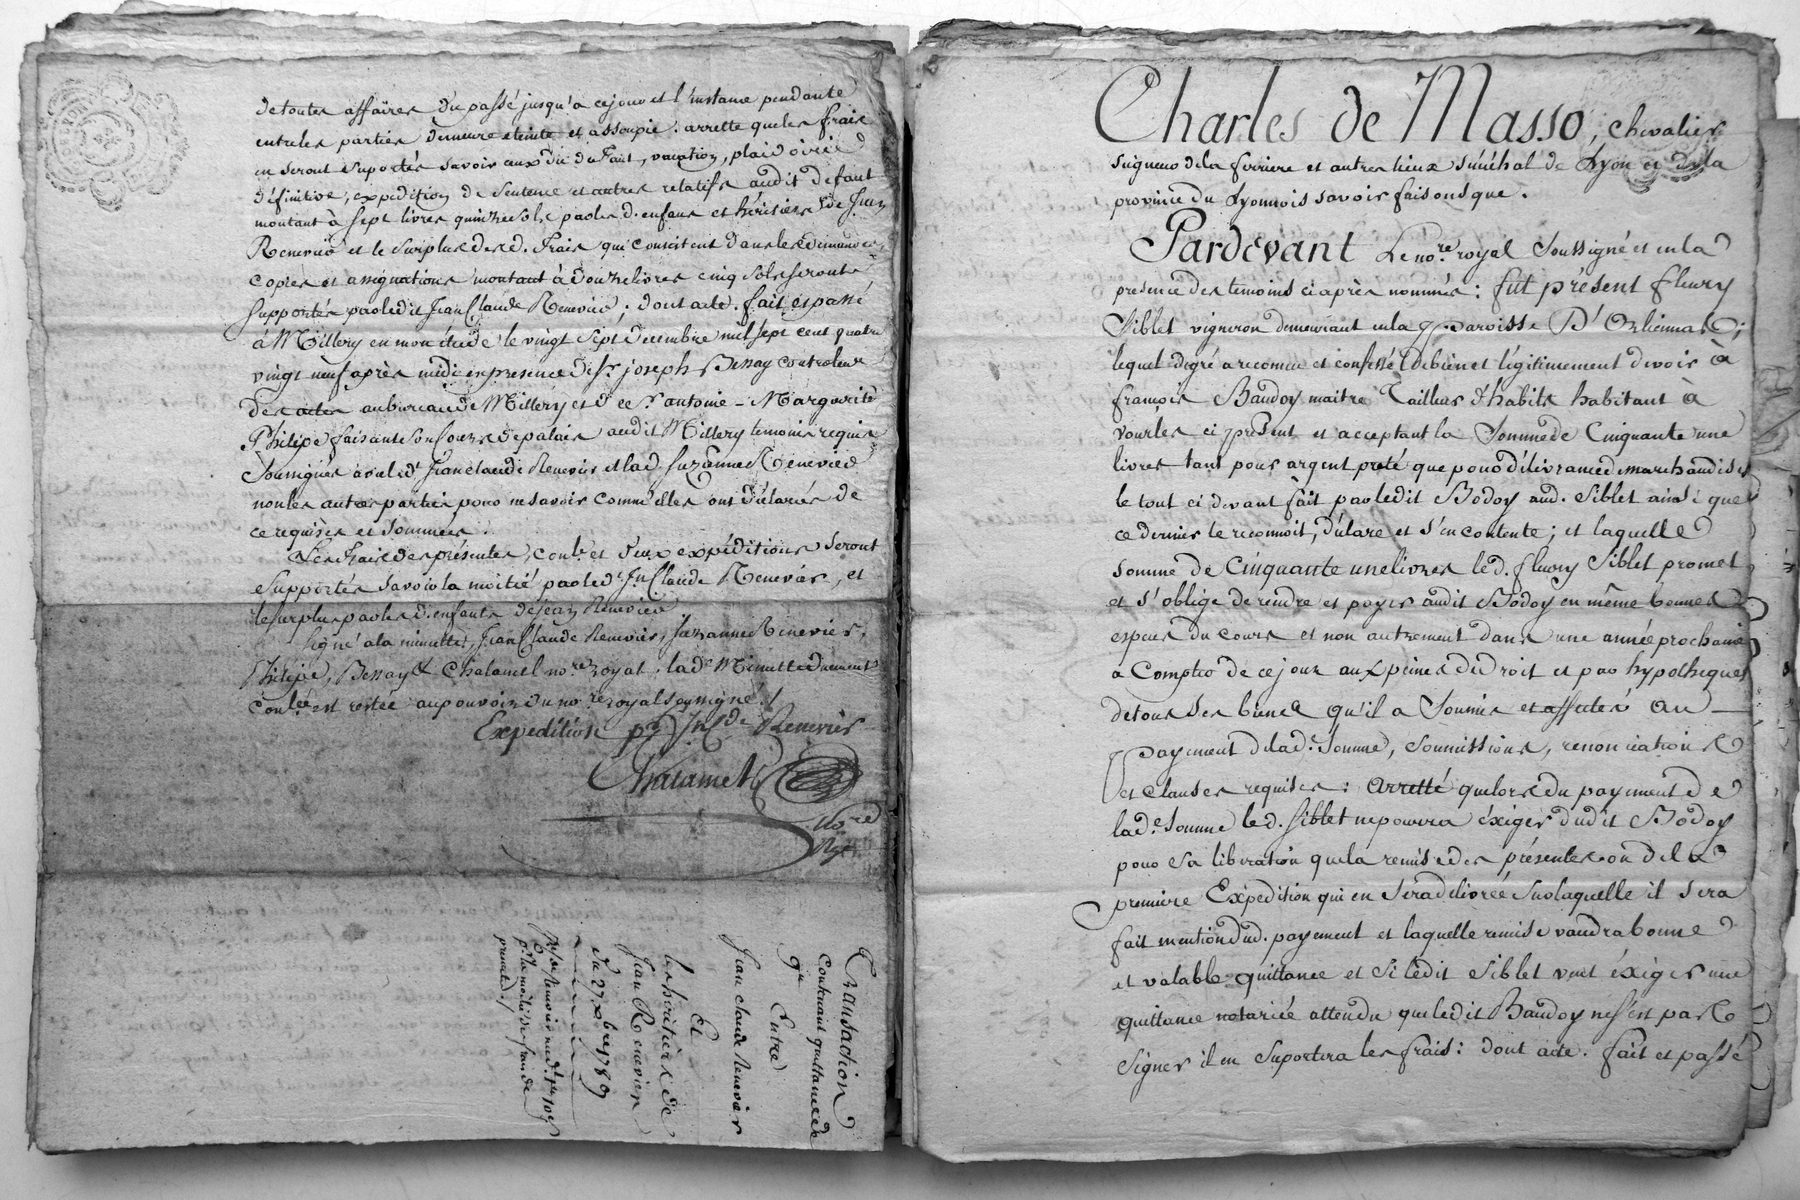 de toutes affaires du passé jusqu'a ce jour et l'instance pendante
entre les parties demeure eteinte et assoupie. arrette que les frais
en seront suportés savoir ceux du du fait, vacation, plaidoirie
définitive, expedition de sentence et autres relatifs audit defaut
montant à sept livres quinze sols par les d. enfans et héritiers de Jean
Renevier et le surplus desd. frais qui consistent dans les demandes,
copies et assignations montant à douze livres cinq sols seront
supportés par ledit Jean Claude Renevier; dont acte. fait et passé
à Millery en mon étude le vingt sept decembre mil sept cent quatre
vingt neuf après midi en presence de Sr. joseph Bessay controleur
des actes au bureau de Millery et de Sr. antoine - Margueritte
Philipe faisant son cours de palais audit Millery temoins requis
soussignés avec led. Jean Claude Renevier et lad. Suzanne Renevier
non les autres parties pour ne savoir comme elles ont déclarés de
ce requises et sommées.
Les frais des présentes, conle. et deux expéditions seront
supportés savoir la moitié par led. Jn. Claude Renevier, et
le surplus par les d. enfants de Jean Renevier
signé a la minutte, Jean Claude Renevier, Suzanne Renevier,
Philipe, Bessay & Chalamel no.re royal. lad.e Minutte duement
conlée est restée au pouvoir du no.re royal soussigné./.
Expedition pr. Jn. Cl.de Renevier
Chalamel
No.re
Ryal
Transaction
contenant quittance de
Entre
Jean claude Renevier
et
les héritiers de
Jean Renevier
Du 27 xbre 1789
Charles de Masso, chevalier
seigneur de la ferriere et autres lieux sénéchal de Lyon et de la
province du Lyonnois savoir faisons que.
Pardevant Le no.re royal soussigné et en la
presence des temoins ci après nommés: fut présent fleury
Siblet vigneron demeurant en la paroisse D'Orliénas;
lequel de gré a reconnu et confessé bien et légitimement devoir à
françois Baudoy maitre Tailleur d'habits habitant à
vourles ci présent et acceptant la somme de Cinquante une
livres tant pour argent preté que pour délivrance de marchandises
le tout ci devant fait par ledit Bodoy aud. Siblet ainsi que
ce dernier le reconnoit, déclare et s'en contente; et laquelle
somme de Cinquante une livres le d. fleury Siblet promet
et s'oblige de rendre et payer audit Bodoy en même bonnes
espèces du cours et non autrement dans une année prochaine
a Compter de ce jour aux peines du droit et par hypotheques
de tous ses biens qu'il a soumis et affectés au
payement de lad. somme, soumissions, renonciations
et clauses requises: arretté que lors du payement de
lad.e somme le d. Siblet ne pourra éxiger dudit Bodoy
pour sa libération que la remise des présentes ou de la
premiere Expedition qui en sera délivrée sur laquelle il sera
fait mention dud. payement et laquelle remise vaudra bonne
et valable quittance et si ledit Siblet veut éxiger une
quittance notariée attendu que ledit Baudoy ne sçait pas
signer il en suportera les frais: dont acte. fait et passé